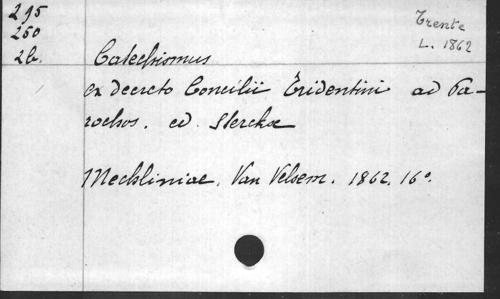 295
250
2b.
Trente
L. 1862
Catechismus
ex decreto Concilii Tridentini ad Pa-
rochos. ed. Sterckx
Mechliniae. Van Velsem. 1862. 16°.